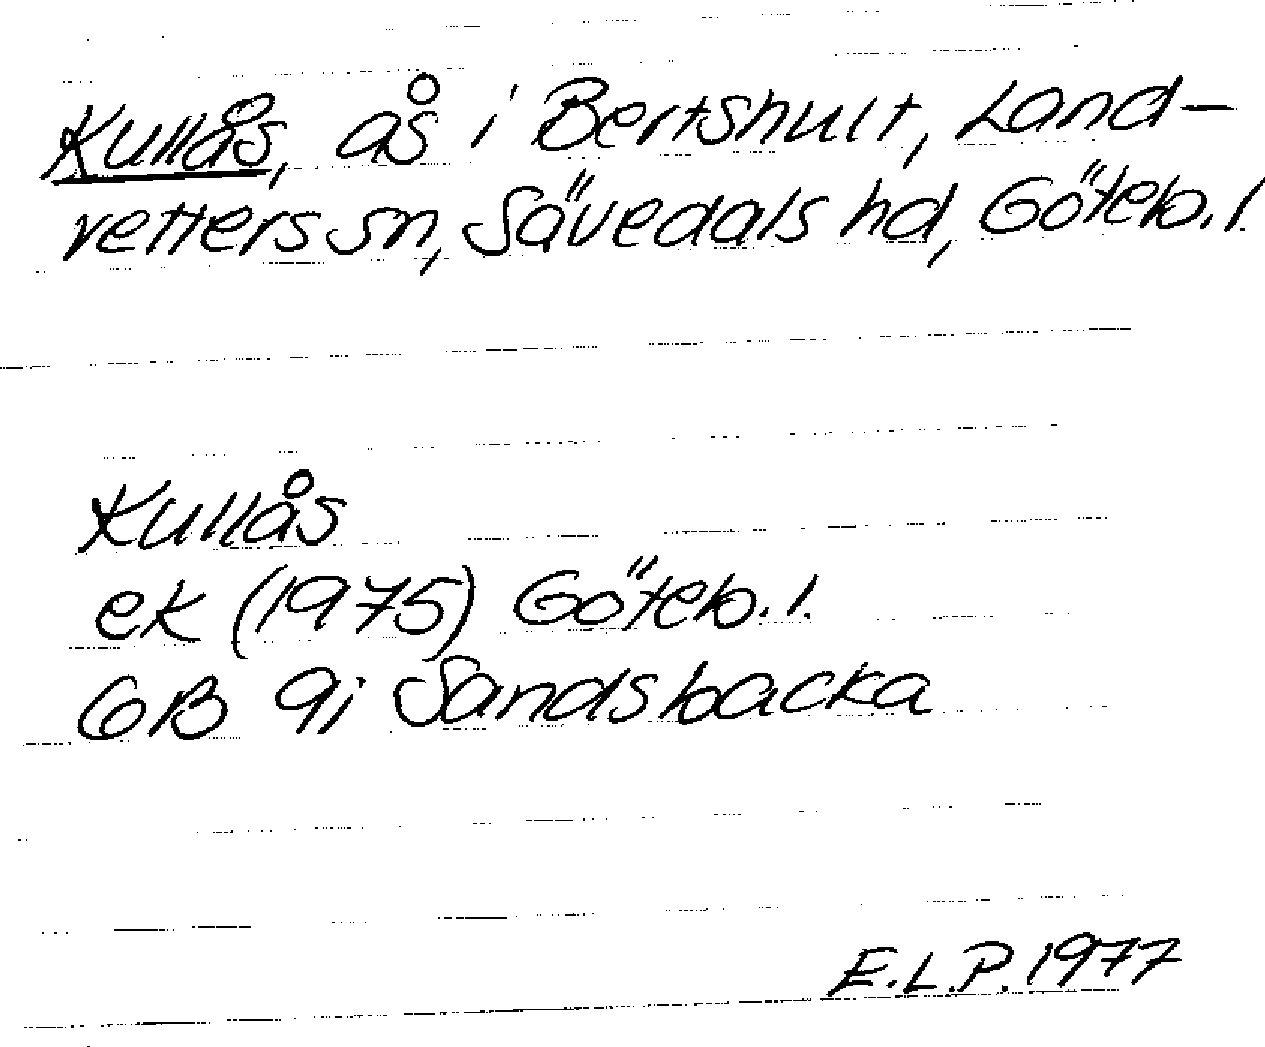 Kullås, ås i Bertshult, Land-
vetters sn, Sävedals hd, Göteb. l.
Kullås
ek (1975) Göteb. l.
GB 9i Sandsbacka
E.L.P. 1977